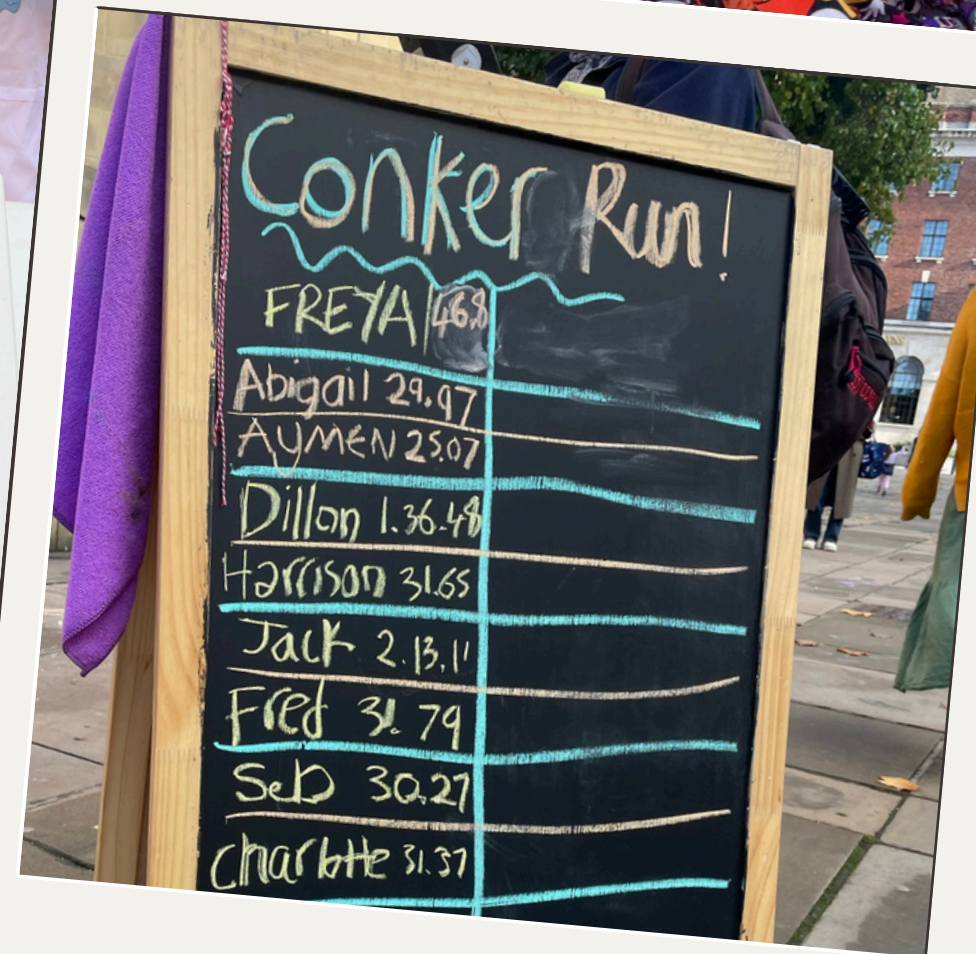 Conker Run!
FREYA 46.8
Abigail 29.97
AYMEN 25.07
Dillon 1.36.48
Harrison 31.65
Jack 2.13.11
Fred 31.79
SeB 30.27
Charlotte 31.37